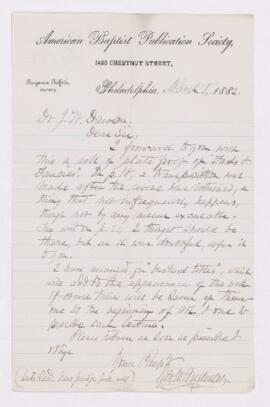 American Baptist Publication Society,
1420 CHESTNUT STREET,
Benjamin Griffith,
Philadelphia, March 1, 1882
Dr J. W. Dawson
Dear Sir,
I forward to you now
this a roll of plate proof of "Facts &
Fancies". In p. 18, a transposition was
made after the proof was returned, a
thing that not infrequently happens,
though not by any means excusable.
The word on p. 24, 2 should be
there, but as it was doubtful, refer it
to you.
I have arranged for "bastard titles", which
will add to the appearance of the work.
Of course there will be seven of them
one at the beginning of all, & one to
precede each lecture.
Please return as soon as possible &
oblige
Yours Respy